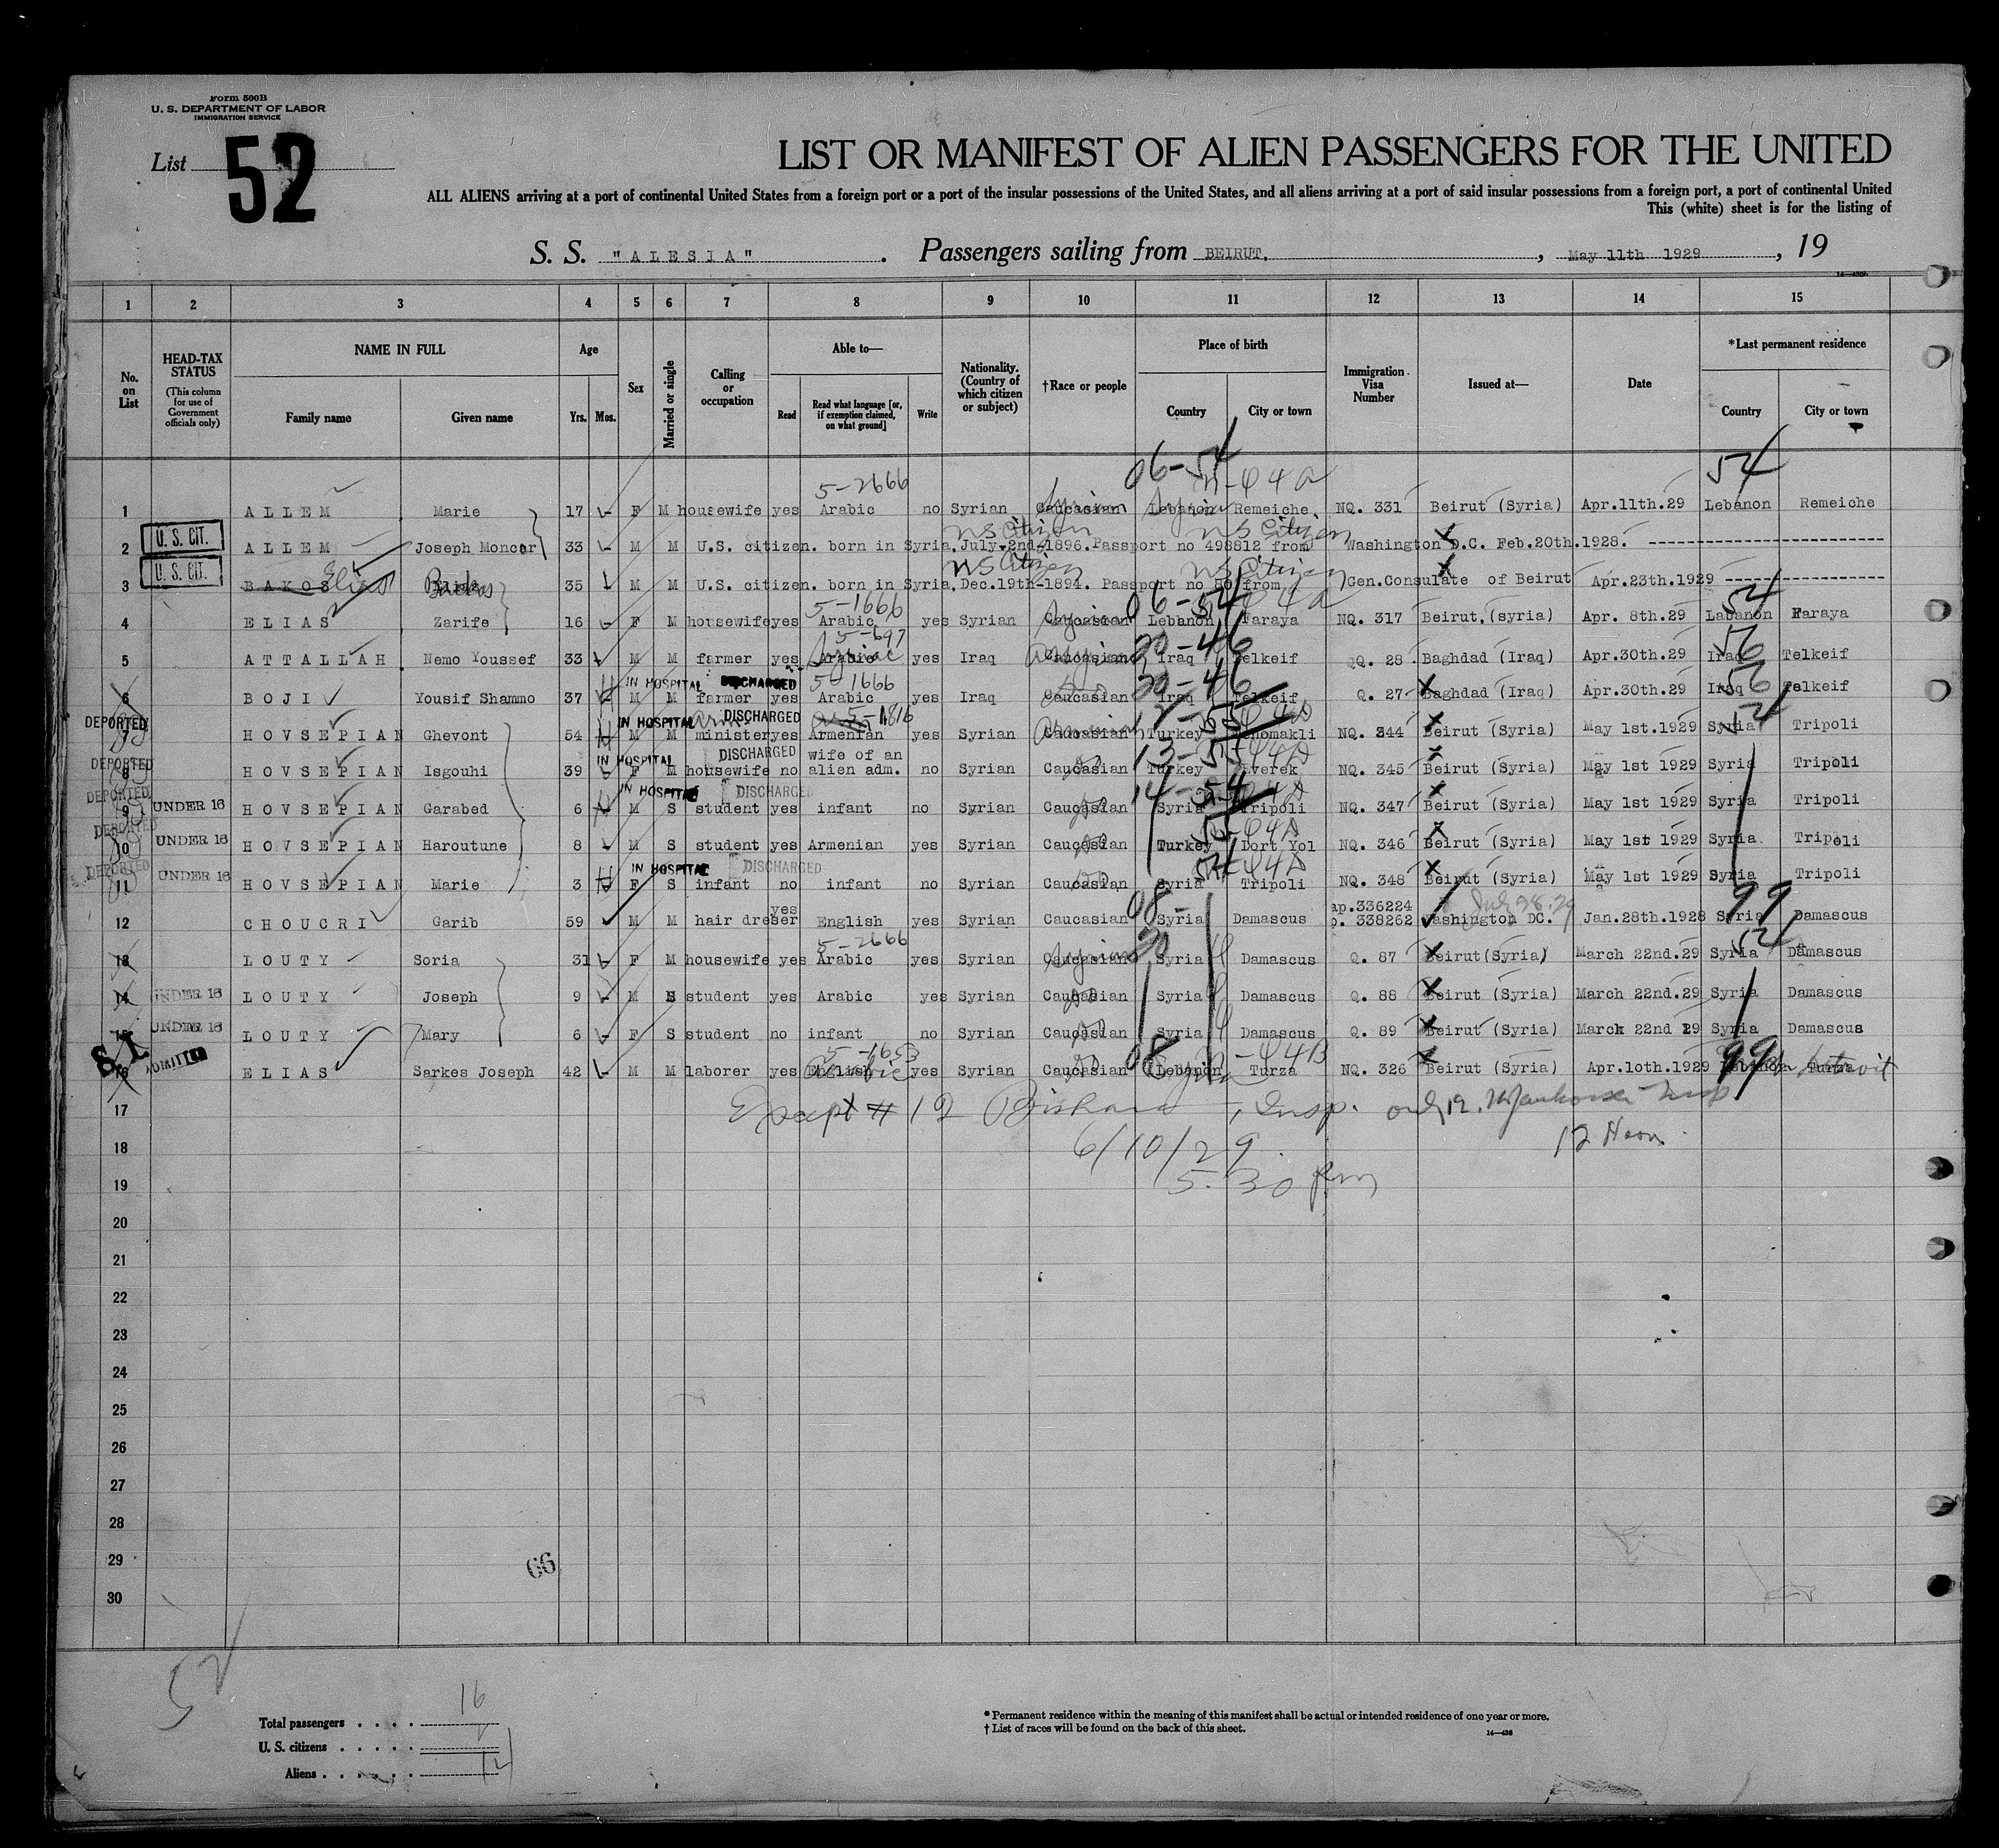 Form 500B
U. S. DEPARTMENT OF LABOR
IMMIGRATION SERVICE
List 52
LIST OR MANIFEST OF ALIEN PASSENGERS FOR THE UNITED
ALL ALIENS arriving at a port of continental United States from a foreign port or a port of the insular possessions of the United States, and all aliens arriving at a port of said insular possessions from a foreign port, a port of continental United
This (white) sheet is for the listing of
S. S. "ALESIA". Passengers sailing from BEIRUT, , May 11th 1929 , 19
1 2 3 4 5 6 7 8 9 10 11 12 13 14 15
No. on List
HEAD-TAX STATUS (This column for use of Government officials only)
NAME IN FULL Family name Given name
Age Yrs. Mos.
Sex
Married or single
Calling or occupation
Able to— Read Read what language [or, if exemption claimed, on what ground] Write
Nationality. (Country of which citizen or subject)
†Race or people
Place of birth Country City or town
Immigration Visa Number
Issued at—
Date
*Last permanent residence Country City or town
06-54 54
5-2666
1 ALLEM Marie 17 F M housewife yes Arabic no Syrian Caucasian Syrian Lebanon Remeiche NQ. 331 Beirut (Syria) Apr.11th.29 Lebanon Remeiche
U. S. CIT. US Citizen US Citizen
2 ALLEM Joseph Moncer 33 M M U.S. citizen. born in Syria, July 2nd-1896. Passport no 498812 from Washington D.C. Feb.20th.1928.
U. S. CIT. US Citizen US Citizen
3 BAKOS Elias 35 M M U.S. citizen. born in Syria, Dec.19th-1894. Passport no 80 from Gen.Consulate of Beirut Apr.23th.1929
5-1666 06-54 54
4 ELIAS Zarife 16 F M housewife yes Arabic yes Syrian Caucasian Lebanon Faraya NQ. 317 Beirut, (syria) Apr. 8th.29 Labanon Faraya
5-697 20-46 56
5 ATTALLAH Nemo Youssef 33 M M farmer yes Arabic Syriac yes Iraq Caucasian Iraq Telkeif QQ. 28 Baghdad (Iraq) Apr.30th.29 Iraq Telkeif
IN HOSPITAL DISCHARGED 5-1666 20-46 56
6 BOJI Yousif Shammo 37 M M farmer yes Arabic yes Iraq Caucasian Iraq Telkeif Q. 27 Baghdad (Iraq) Apr.30th.29 Iraq Telkeif
DEPORTED IN HOSPITAL DISCHARGED
7 HOVSEPIAN Ghevont 54 M M minister yes Armenian yes Syrian Caucasian Turkey Chomakli NQ. 344 Beirut (Syria) May 1st.1929 Syria Tripoli
DEPORTED IN HOSPITAL DISCHARGED wife of an
8 HOVSEPIAN Isgouhi 39 F M housewife no alien adm. no Syrian Caucasian Turkey Everek NQ. 345 Beirut (Syria) May 1st 1929 Syria Tripoli
DEPORTED IN HOSPITAL DISCHARGED
9 UNDER 16 HOVSEPIAN Garabed 6 M S student yes infant no Syrian Caucasian Syria Tripoli NQ. 347 Beirut (Syria) May 1st 1929 Syria Tripoli
DEPORTED
10 UNDER 16 HOVSEPIAN Haroutune 8 M S student yes Armenian yes Syrian Caucasian Turkey Dort Yol NQ. 346 Beirut (Syria) May 1st 1929 Syria Tripoli
DEPORTED IN HOSPITAL DISCHARGED
11 UNDER 16 HOVSEPIAN Marie 3 F S infant no infant no Syrian Caucasian Syria Tripoli NQ. 348 Beirut (Syria) May 1st 1929 Syria Tripoli
08- 336224 99
12 CHOUCRI Garib 59 M M hair dreser yes English yes Syrian Caucasian Syria Damascus p. 338262 Washington DC. Jan.28th.1928 Syria Damascus
5-2666 20 54
13 LOUTY Soria 31 F M housewife yes Arabic yes Syrian Caucasian Syria Damascus Q. 87 Beirut(Syria) March 22nd.29 Syria Damascus
14 UNDER 16 LOUTY Joseph 9 M S student yes Arabic yes Syrian Caucasian Syria Damascus Q. 88 Beirut (Syria) March 22nd.29 Syria Damascus
15 UNDER 16 LOUTY Mary 6 F S student no infant no Syrian Caucasian Syria Damascus Q. 89 Beirut (Syria) March 22nd 29 Syria Damascus
S.I. ADMITTED 5-1653 08 99
16 ELIAS Sarkes Joseph 42 M M laborer yes English Arabic yes Syrian Caucasian Lebanon Turza NQ. 326 Beirut (Syria) Apr.10th.1929 Lebanon Turza Detroit
17 Except #12 Insp. only 12. Insp
18 6/10/29 12 Noon
19 5.30 pm
20
21
22
23
24
25
26
27
28
29 66
30
52
Total passengers . . . . 16
U. S. citizens . . . . .
Aliens . . . . . .
* Permanent residence within the meaning of this manifest shall be actual or intended residence of one year or more.
† List of races will be found on the back of this sheet.
14—436